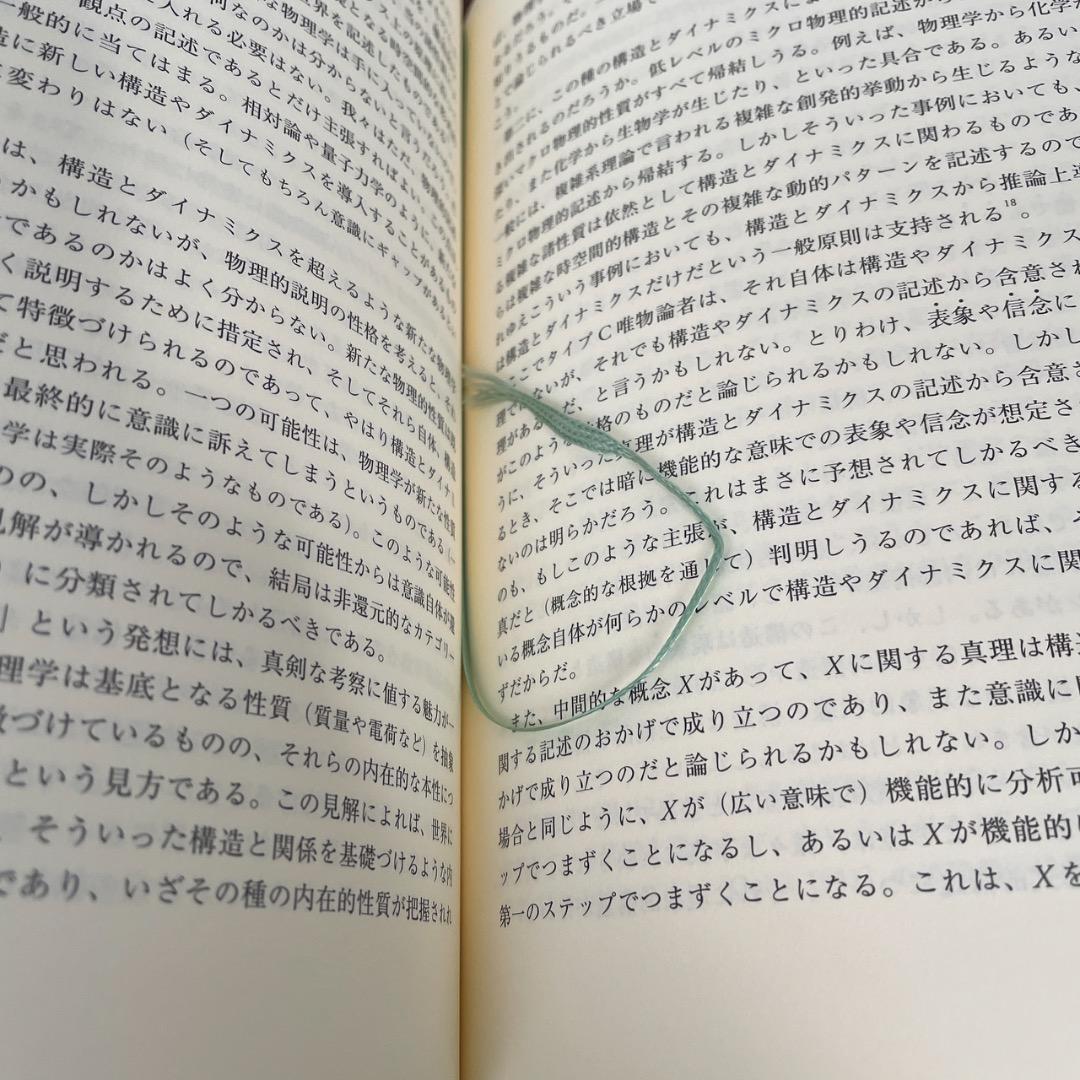 観点の記述であるとだけ主張すればよい。
一般的に当てはまる。相対論や量子力学のように、新た
造に新しい構造やダイナミクスを導入することがあるもの
変わりはない（そしてもちろん意識にギャップがあると
は、構造とダイナミクスを超えるような新たな物理学
うかもしれないが、物理的説明の性格を考えると、それ
であるのかはよく分からない。新たな物理的性質は
く説明するために措定され、そしてそれら自体、構造
て特徴づけられるのであって、やはり構造とダイナミ
だと思われる。一つの可能性は、物理学が新たな性質
最終的に意識に訴えてしまうというものである（一
学は実際そのようなものである）。このような可能性
のの、しかしそのような可能性からは意識自体が還
見解が導かれるので、結局は非還元的なカテゴリー
）に分類されてしかるべきである。
」という発想には、真剣な考察に値する魅力が一
理学は基底となる性質（質量や電荷など）を抽象
づけているものの、それらの内在的な本性につ
という見方である。この見解によれば、世界に
、そういった構造と関係を基礎づけるような内
であり、いざその種の内在的性質が把握されれ
とで論じられるべき立場で
第二に、この種の構造とダイナミクスによ
き出されるのだろうか。低レベルのミクロ物理的記述から
深いマクロ物理的性質がすべて帰結しうる。例えば、物理学から化学が
たり、また化学から生物学が生じたり、といった具合である。あるい
一般には、複雑系理論で言われる複雑な創発的挙動から生じるような
ミクロ物理的記述から帰結する。しかしそういった事例においても、
る複雑な諸性質は依然として構造とダイナミクスに関わるものであ
らは複雑な時空間的構造とその複雑な動的パターンを記述するので
れゆえこういう事例においても、構造とダイナミクスから推論上導
は構造とダイナミクスだけだという一般原則は支持される18。
ここでタイプC唯物論者は、それ自体は構造やダイナミクス
理ではないが、それでも構造やダイナミクスの記述から含意され
理がある だ、と言うかもしれない。とりわけ、表象や信念に
がこのような 格のものだと論じられるかもしれない。しかし
うに、そういった真理が構造とダイナミクスの記述から含意さ
るとき、そこでは暗に機能的な意味での表象や信念が想定さ
ないのは明らかだろう。これはまさに予想されてしかるべき
のも、もしこのような主張が、構造とダイナミクスに関する
真だと（概念的な根拠を通じて）判明しうるのであれば、そ
いる概念自体が何らかのレベルで構造やダイナミクスに関
ずだからだ。
また、中間的な概念Xがあって、Xに関する真理は構造
関する記述のおかげで成り立つのであり、また意識に
かげで成り立つのだと論じられるかもしれない。しか
場合と同じように、Xが（広い意味で）機能的に分析可
ップでつまずくことになるし、あるいはXが機能的
第一のステップでつまずくことになる。これは、Xを